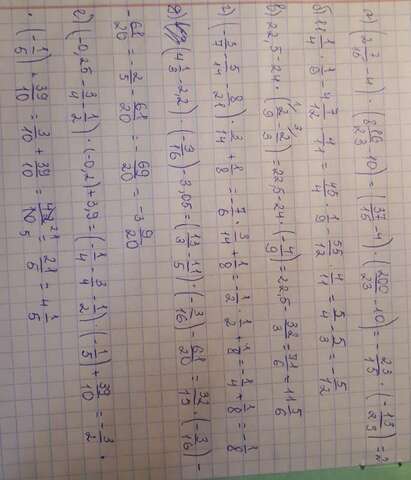 а) (2 7/15 - 4) · (8 16/23 - 10) = (37/15 - 4) · (200/23 - 10) = - 23/15 · (- 30/23) = 2
б) 11 1/4 · 1/9 - 4 7/12 · 4/11 = 45/4 · 1/9 - 55/12 · 4/11 = 5/4 - 5/3 = - 5/12
в) 22,5 - 24 · (2/9 - 2/3) = 22,5 - 24 · (- 4/9) = 22,5 - 32/3 = 71/6 = 11 5/6
г) (- 3/7 - 5/14 - 8/21) · 3/14 + 1/8 = - 7/6 · 3/14 + 1/8 = - 1/2 · 1/2 + 1/8 = - 1/4 + 1/8 = - 1/8
д) (4 1/3 - 2,2) · (- 3/16) - 3,05 = (13/3 - 11/5) · (- 3/16) - 61/20 = 32/15 · (- 3/16) -
- 61/20 = - 2/5 - 61/20 = - 69/20 = - 3 9/20
е) (-0,25 - 3/4 - 1/2) · (-0,2) + 3,9 = (- 1/4 - 3/4 - 1/2) · (- 1/5) + 39/10 = - 3/2 ·
· (- 1/5) + 39/10 = 3/10 + 39/10 = 42 21/10 5 = 21/5 = 4 1/5